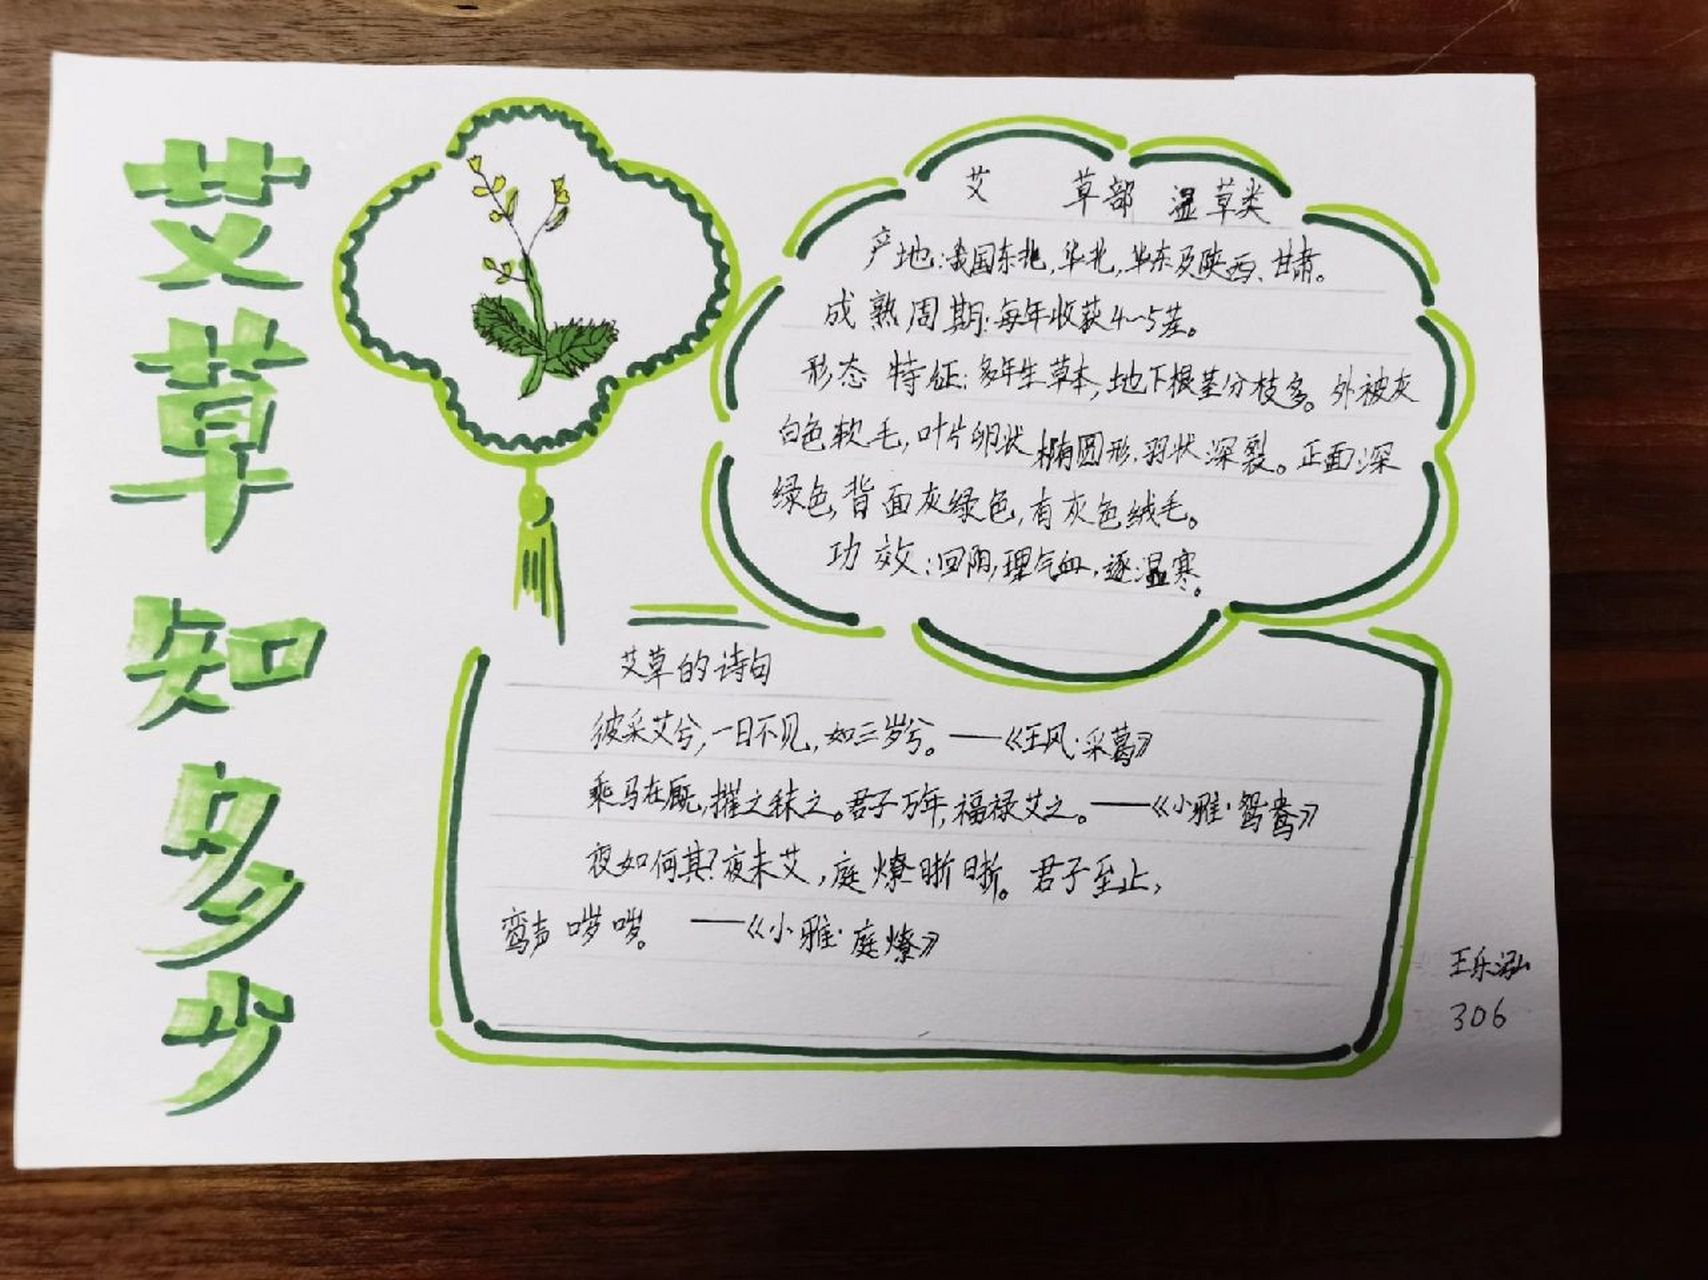 艾草知多少
艾 草部 温草类
产地:我国东北,华北,华东及陕西、甘肃。
成熟周期:每年收获4~5茬。
形态特征:多年生草本,地下根茎分枝多。外被灰
白色软毛,叶片卵状椭圆形,羽状深裂。正面深
绿色,背面灰绿色,有灰色绒毛。
功效:回阳,理气血,逐温寒。
艾草的诗句
彼采艾兮,一日不见,如三岁兮。——《王风·采葛》
乘马在厩,摧之秣之。君子万年,福禄艾之。——《小雅·鸳鸯》
夜如何其?夜未艾,庭燎晣晣。君子至止,
鸾声哕哕。 ——《小雅·庭燎》
王乐泓
306